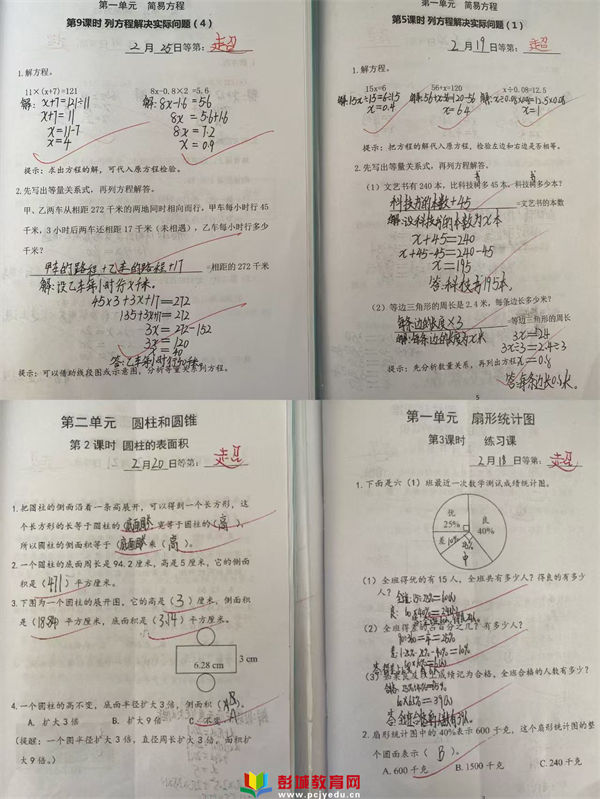 第一单元 简易方程
第9课时 列方程解决实际问题（4）
2月25日等第：
1.解方程。
11×(x+7)=121
8x-0.8×2=5.6
解：x+7=121÷11
x+7=11
x=11-7
x=4
解：8x-1.6=5.6
8x=5.6+1.6
8x=7.2
x=0.9
提示：求出方程的解，可代入原方程检验。
2.先写出等量关系式，再列方程解答。
甲、乙两车从相距272千米的两地同时相向而行，甲车每小时行45
千米，3小时后两车还相距17千米（未相遇），乙车每小时行多少
千米？
甲车的路程+乙车的路程+17=相距的272千米
解：设乙车每小时行x千米。
45×3+3x+17=272
135+3x+17=272
3x=272-152
3x=120
x=40
答：乙车每小时行40千米
提示：可以借助线段图或示意图，分析等量关系列方程。
第一单元 简易方程
第5课时 列方程解决实际问题（1）
2月19日等第：
1.解方程。
15x=6
56+x=120
x÷0.08=12.5
解：15x÷15=6÷15
x=0.4
解：56+x-56=120-56
x=64
解：x÷0.08×0.08=12.5×0.08
x=1
提示：把方程的解代入原方程，检验左边和右边是否相等。
2.先写出等量关系式，再列方程解答。
（1）文艺书有240本，比科技书多45本，科技书多少本？
科技书的本数+45=文艺书的本数
解：设科技书的本数为x本
x+45=240
x+45-45=240-45
x=195
答：科技书195本。
（2）等边三角形的周长是2.4米，每条边长多少米？
每条边的长度×3=等边三角形的周长
解：每条边的长度为x米
3x=2.4
3x÷3=2.4÷3
x=0.8
提示：先分析数量关系，再列出方程
答：每条边长0.8米。
5
第二单元 圆柱和圆锥
第2课时 圆柱的表面积
2月20日等第：
1.把圆柱的侧面沿着一条高展开，可以得到一个长方形，这
个长方形的长等于圆柱的（底面周长），宽等于圆柱的（高），
所以圆柱的侧面积等于（底面周长）乘（高）。
2.一个圆柱的底面周长是94.2厘米，高是5厘米，它的侧面
积是（471）平方厘米。
3.下图为一个圆柱的展开图，它的高是（3）厘米，侧面积
是（18.84）平方厘米，底面积是（3.14）平方厘米。
6.28 cm
3 cm
4.一个圆柱的高不变，底面半径扩大3倍，侧面积（A）。
A.扩大3倍 B.扩大9倍 C.不变
（提醒：一个圆半径扩大3倍，直径周长扩大3倍，面积扩
大9倍。）
第一单元 扇形统计图
第3课时 练习课
2月18日等第：
1.下面是六（1）班最近一次数学测试成绩统计图。
优
25%
良
40%
差10%
中
（1）全班得优的有15人，全班共有多少人？得良的有多少
人？
（2）全班得差的占百分之几？有多少人？
（3）如果优及良上成绩记为合格，全班合格的人数有多少？
2.扇形统计图中的40%表示600千克，这个扇形统计图的整
个圆面表示（B）。
A.600千克 B.1500千克 C.240千克
彭城教育网
www.pcjyedu.cn